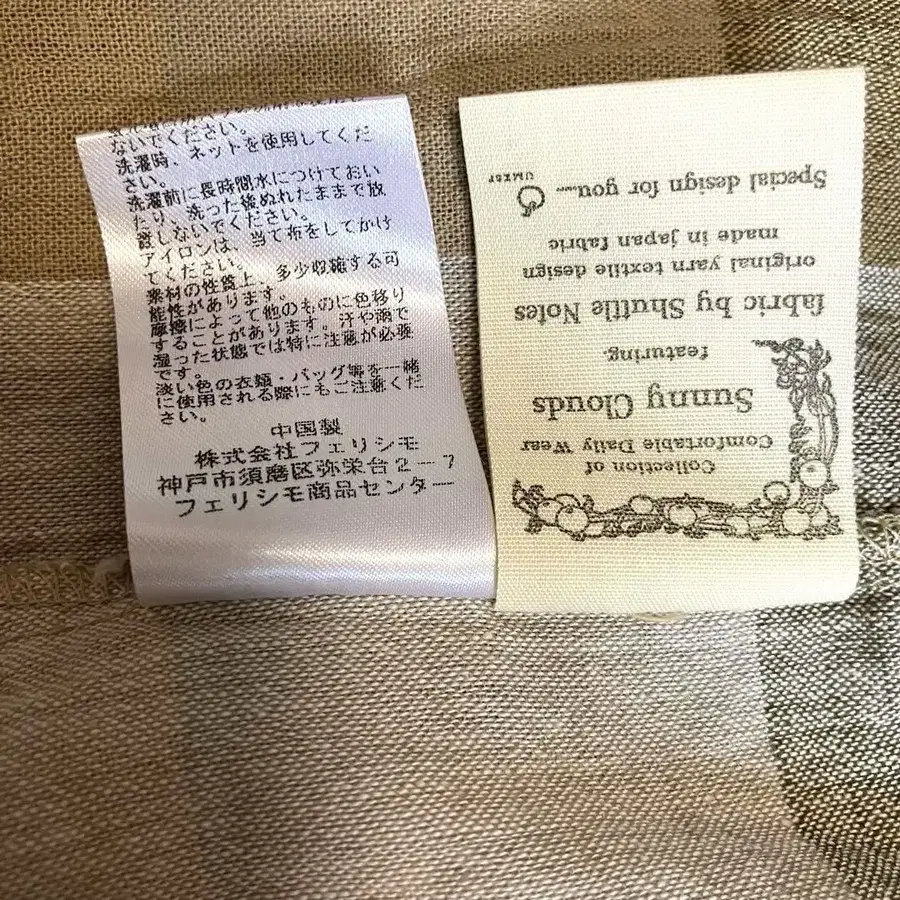 ないでください。
洗濯時、ネットを使用してくだ
さい。
洗濯前に長時間水につけておい
たり、洗った後ぬれたままで放
置しないでください。
アイロンは、当て布をしてかけ
てください。
素材の性質上、多少収縮する可
能性があります。
摩擦によって他のものに色移り
することがあります。汗や雨で
湿った状態では特に注意が必要
です。
淡い色の衣類・バッグ等を一緒
に使用される際にもご注意くだ
さい。
中国製
株式会社フェリシモ
神戸市須磨区弥栄台2-7
フェリシモ商品センター
Collection of
Comfortable Daily Wear
Sunny Clouds
featuring.
fabric by Shuttle Notes
original yarn textile design
made in japan fabric
Special design for you......